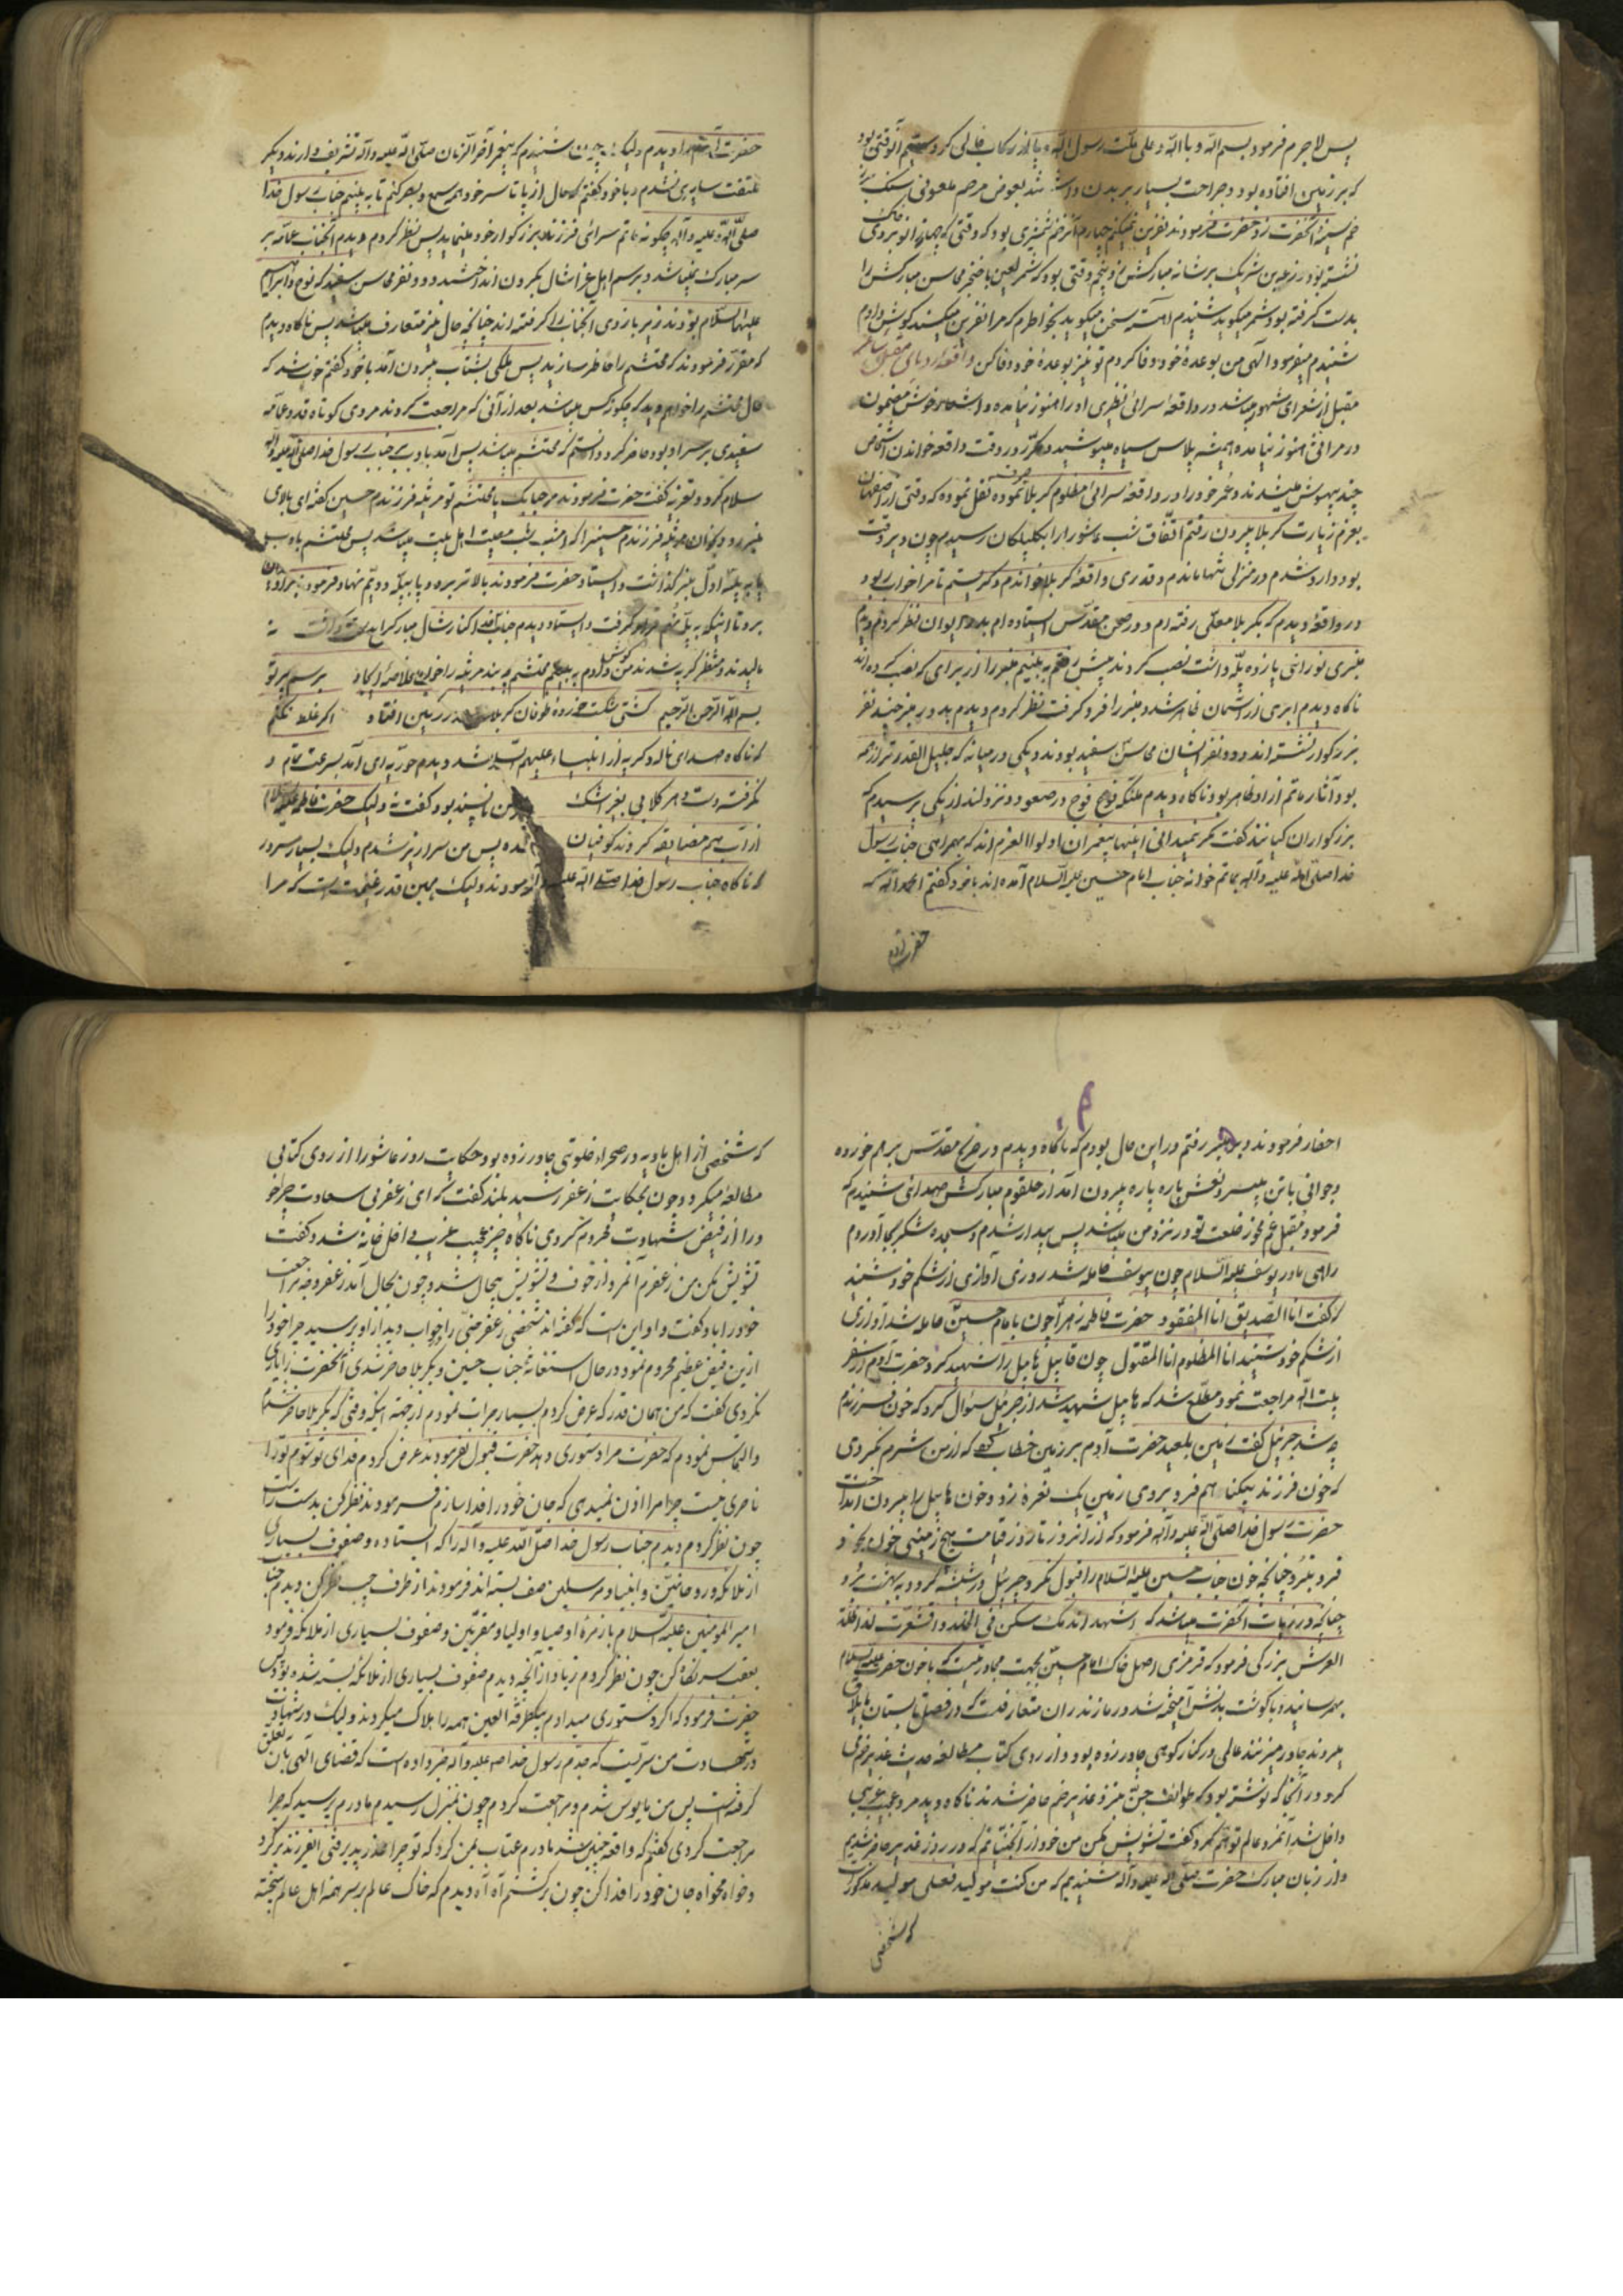 پس لاجرم فرمود بسم الله و باالله و علی ملت رسول الله و پا از رکاب خالی کرد سیم آنوقتی بود
که بر زمین افتاده بود و جراحت بسیار بر بدن داشت بعوض مرحم ملعونی سنک بر
زخم سینه آنحضرت زد حضرت فرمودند نفرین نمیکنم چهارم آنزخم شمشیری بود که وقتی که
نشسته بود زرعة بن شریک بر شانه مبارکش زد پنجم وقتی بود که شمر لعین با خنجر محاسن مبارکش را
بدست گرفته بود شمر میکوید شنیدم آهسته سخن میکوید بخواطرم که مرا نفرین میکند کوش دادم
شنیدم میفرمود الهی من بوعدهٔ خود وفا کردم تو نیز بوعدهٔ خود وفا کن واقعه رویای مقبل شاعر
مقبل از شعرای مشهور میباشد در واقعه سرائی نظیری او را هنوز نیامده و اشعار خوش مضمون
در مراثی هنوز نیامده همیشه پلاس سیاه میپوشید و مکرر در وقت واقعه خواندن اشخاص
چند بیهوش میشدند و عمر خود را در واقعه سرائی مظلوم کربلا صرف نموده نقل نموده که وقتی از اصفهان
بعزم زیارت کربلا بیرون رفتم اتفاق شب عاشورا را بکلپایکان رسیدم چون دیر وقت
بود وارد شدم در منزلی تنها ماندم و قدری واقعه کربلا خواندم و کریستم تا مرا خواب ربود
در واقعه دیدم که بکربلا معلی رفته ام و در صحن مقدس ایستاده ام بدر ایوان نظر کردم دیدم
منبری نورانی یازده پله داشت نصب کردند پیش رفتم به بینیم منبر را از برای که نصب کرده اند
ناکاه دیدم ابری از آسمان ظاهر شد و منبر را فرو گرفت نظر کردم و دیدم بدور منبر چند نفر
بزرکوار نشسته اند و دو نفر ایشان محاسن سفید بودند و یکی در میانه که جلیل القدرتر از همه
بود آثار ماتم از او ظاهر بود ناکاه دیدم ملئکه فوج فوج در صعود و نزولند از یکی پرسیدم که
بزرکواران کیانند گفت مکر نمیدانی اینها پیغمبران اولوا العزم اند که بهمراهی جناب رسول
خدا صلی الله علیه و آله بماتم خوانه جناب امام حسین علیه السلام آمده اند با خود گفتم الحمد لله که
حضرت آدم
حضرت آدم را دیدم ولیک چون شنیدم که پیغمبر آخر الزمان صلی الله علیه و آله تشریف دارند دیگر
ملتفت سایرین نشدم و با خود گفتم که حال از پا تا سر خود همه سمع و بصر کنم تا به بینم جناب رسول خدا
صلی الله علیه و آله چکونه ماتم سرائی فرزند بزرکوار خود مینماید پس نظر کردم دیدم آنجناب عمامه بر
سر مبارک نمیباشد و برسم اهل عزا شال بکردن انداخته و دو نفر محاسن سفید که نوح و ابراهیم
علیهما السلام بودند زیر بازوی آنجناب را گرفته اند چنانکه حال نیز متعارف میباشد پس ناکاه دیدم
که مقرر فرمودند که محتشم را حاظر سازند پس ملکی بشتاب بیرون آمد با خود گفتم خوب شد که
حال محتشم را خواهم دید که چکونه کس میباشد بعد از آنی که مراجعت کردند مردی کوتاه قد و عمامه
سفیدی بر سر او بود حاضر کرد دانستم که محتشم میباشد پس آمد با ادب بر جناب رسول خدا صلی الله علیه و آله
سلام کرد و تعزیه گفت حضرت فرمودند مرحبا بک یا محتشم تو مرثیه فرزندم حسین گفته ای بالای
منبر رو و بخوان مرثیه فرزندم حسین را که امشب شب مصیبت اهل بیت میباشد پس محتشم باادب
پا به پله اول منبر گذاشت و ایستاد حضرت فرمودند بالاتر برو پا بپله دویم نهاد فرمود بالاتر
برو تا اینکه به پله نهم قرار گرفت و ایستاد دیدم جناب
مالیدند و منتظر کریه شدند من کوش دادم به بینم محتشم چه بند مرثیه را خواهد برسم
بسم الله الرحمن الرحیم کشتی شکست خورده طوفان کربلا در خاک و خون افتاد اگر غلط نکنم
که ناکاه صدای ناله و کریه از انبیاء علیهم السلام بلند شد دیدم حوریه ای آمد بسرعت تمام و
نکرفته دست دهر کلابی بغیر اشک من ناپسند بود گفت نه ولیک حضرت فاطمه
از آب هم مضایقه کردند کوفیان پس من سرازیر شدم ولیک بسیار مسرور
که ناکاه جناب رسول خدا صلی الله علیه و آله فرمودند ولیک همین قدر غنیمت است که مرا
احضار فرمودند و بر منبر رفتم در این حال بودم که ناکاه دیدم درِ ضریح مقدس بر هم خورده
و جوانی با تن بیسر و نعش پاره پاره بیرون آمد از حلقوم مبارکش صدائی شنیدم که
فرمود مقبل غم مخور خلعت تو در نزد من میباشد پس بیدار شدم و سجده شکر بجا آوردم
راهی مادر یوسف علیه السلام چون بیوسف حامله شد روزی آوازی از شکم خود شنید
که گفت انا الصدیق انا المفقود حضرت فاطمه زهرا چون بامام حسین حامله شد آوازی
از شکم خود شنید انا المظلوم انا المقتول چون قابیل هابیل را شهید کرد و حضرت آدم از سفر
بیت الله مراجعت نمود مطلع شد که هابیل شهید شد از جبرئیل سئوال کرد که خون فرزندم
چه شد جبرئیل گفت زمین بلعید حضرت آدم بر زمین خطاب کرد که از من شرم نکردی
که خون فرزند بیکناهم فرو بردی زمین یک نعره زد و خون هابیل را بیرون انداخت
حضرت رسول خدا صلی الله علیه و آله فرمود که از آنروز تا روز قیامت هیچ زمینی خون بخود
فرو نبرد چنانچه خون جناب حسین علیه السلام را قبول نکرد و جبرئیل در شیشه کرد و به بهشت برد
چنانکه در زیارت آنحضرت میباشد که اشهد ان دمک سکن فی الخلد و اقشعرت له اظلة
العرش بزرکی فرمود که قرمزی اصل خاک امام حسین بجهت مجاورتیست که با خون حضرت علیه السلام
بهم رسانیده و با کوشت بدنش آمیخته شد در مازندران متعارفست که در فصل تابستان به ییلاق
میروند چادر میزنند عالمی در کنار کوهی چادر زده بود و از روی کتاب مطالعه حدیث غدیر خم
کرد در آنجا که نوشته بود که طوائف جن نیز در غدیر خم حاضر شدند ناکاه دید مرد عجیب غریبی
داخل شد آنمرد عالم توهم کرد گفت تشویش مکن من خود از آنجنیانم که در روز غدیر حاضر شدیم
و از زبان مبارک حضرت صلی الله علیه و آله شنیدیم که من کنت مولیه فعلی مولیه مذکور است
که شخصی
که شخصی از اهل بادیه در صحراء خلوتی چادر زده بود حکایت روز عاشورا از روی کتابی
مطالعه میکرد و چون بحکایت زعفر رسید بلند گفت که ای زعفر بی سعادت چرا خود
را از فیض شهادت محروم کردی ناکاه چیز عجیب غریبی داخل خانه شد و گفت
تشویش مکن من زعفرم آنمرد از خوف و تشویش بیحال شد و چون بحال آمد زعفر وجه مراجعت
خود را باو گفت و او این است که گفته اند شخصی زعفر جنی را بخواب دید از او پرسید چرا خود را
ازین فیض عظیم محروم نمود در حال استغاثه جناب حسین در کربلا حاضر نشدی آنحضرت را یاری
نکردی گفت که من همان قدر که عرض کردم بسیار جرات نمودم از جهة اینکه وقتی که بکربلا حاضر شدم
و التماس نمودم که حضرت مرا دستوری دهد حضرت قبول نفرمودند عرض کردم فدای تو شوم تو را
ناصری نیست چرا مرا اذن نمیدهی که جان خود را فدا سازم فرمودند نظر کن بدست راست
چون نظر کردم دیدم جناب رسول خدا صلی الله علیه و آله را که ایستاده و صفوف بسیاری
از ملائکه و روحانیین و انبیاء و مرسلین صف بسته اند فرمودند از طرف چپ نظر کن دیدم جناب
امیر المومنین علیه السلام با زمرهٔ اوصیا و اولیا و مقربین و صفوف بسیاری از ملائکه فرمود
بعقب سر نکاه کن چون نظر کردم زیاد از آنچه دیدم صفوف بسیاری از ملائکه بسته شده بود پس
حضرت فرمود که اگر دستوری میدادم بیکطرفة العین همه را هلاک میکردند ولیک
در شهادت من سریست که جدم رسول خدا صلی الله علیه و آله خبر داده است که قضای الهی بآن تعلق
گرفته است پس من مایوس شدم و مراجعت کردم چون بمنزل رسیدم مادرم پرسید که چرا
مراجعت کردی گفتم که واقعه چنین شد مادرم عتاب بمن کرد که تو چرا عذر پذیرفتی ایفرزند برکرد
و خواه مخواه جان خود را فدا کن چون برکشتم آه آه دیدم که خاک عالم بر سر همه اهل عالم بیخته